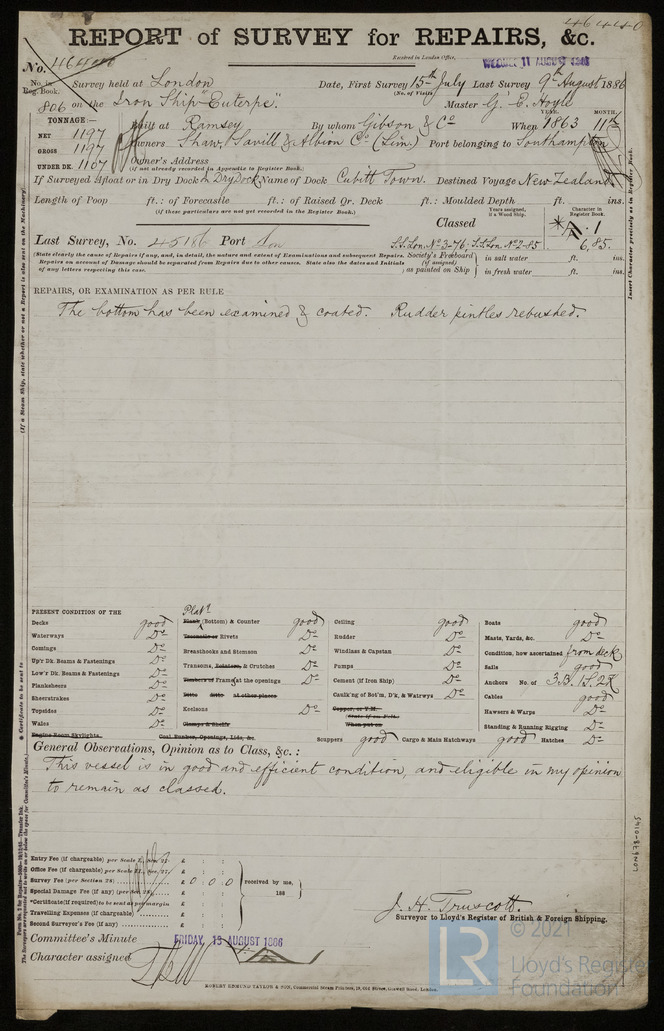 46440
REPORT of SURVEY for REPAIRS, &c.
Received in London Office,
WEDNES. 11 AUGUST 1886
No. 46440
No. in Reg. Book. Survey held at London Date, First Survey 15th July Last Survey 9th August 1886
(No. of Visits )
806 on the Iron Ship "Euterpe" Master G. E. Hoyle
TONNAGE:— YEAR. MONTH.
NET 1197 Built at Ramsey By whom Gibson & Co When 1863 11
GROSS 1197 Owners Shaw, Savill & Albion Co (Lim) Port belonging to Southampton
UNDER DK. 1107 Owner's Address
(if not already recorded in Appendix to Register Book.)
If Surveyed Afloat or in Dry Dock In Dry Dock Name of Dock Cubitt Town. Destined Voyage New Zealand
Length of Poop ft. : of Forecastle ft. : of Raised Qr. Deck ft. : Moulded Depth ft. ins.
(if these particulars are not yet recorded in the Register Book.)
Classed
Years assigned, if a Wood Ship.
Character in Register Book.
1
6,85.
Last Survey, No. 45186 Port Lon S.S. Lon. No 3-76, S.S. Lon No 2-85
(State clearly the cause of Repairs if any, and, in detail, the nature and extent of Examinations and subsequent Repairs.
Repairs on account of Damage should be separated from Repairs due to other causes. State also the dates and Initials
of any letters respecting this case.
Society's Freeboard (if assigned) as painted on Ship
in salt water ft. ins.
in fresh water ft. ins.
REPAIRS, OR EXAMINATION AS PER RULE
The bottom has been examined & coated. Rudder pintles rebushed.
(If a Steam Ship, state whether or not a Report is also sent on the Machinery)
Insert Character precisely as in Register Book.
PRESENT CONDITION OF THE
Decks good
Waterways Do
Comings Do
Up'r Dk. Beams & Fastenings Do
Low'r Dk. Beams & Fastenings Do
Planksheers Do
Sheerstrakes Do
Topsides Do
Wales Do
Engine Room Skylights
Plat'g
Plank (Bottom) & Counter good
Treenails or Rivets Do
Breasthooks and Stemson Do
Transoms, & Crutches Do
Timbers of Frames at the openings Do
Ditto Ditto at other places
Keelsons Do
Clamps & Shelfs
Coal Bunker, Openings, Lids, &c.
Ceiling good
Rudder Do
Windlass & Capstan Do
Pumps Do
Cement (if Iron Ship) Do
Caulk'ng of Bot'm, D'k, & Watrwys Do
Copper, or Y.M.
(State if on Felt.)
When put on
Scuppers good Cargo & Main Hatchways good Hatches Do
Boats good
Masts, Yards, &c. Do
Condition, how ascertained from deck
Sails good
Anchors No. of 3B. 1S. 2K
Cables good
Hawsers & Warps Do
Standing & Running Rigging Do
General Observations, Opinion as to Class, &c. :
This vessel is in good and efficient condition, and eligible in my opinion
to remain as classed.
* Certificate to be sent to
Entry Fee (if chargeable) per Scale I., Sec. 27. £ : :
Office Fee (if chargeable) per Scale II., Sec. 27. £ : :
Survey Fee (per Section 28) £ 0 : 0 : 0
Special Damage Fee (if any) (per Sec. 28) £ : :
*Certificate (if required) to be sent as per margin £ : :
Travelling Expenses (if chargeable) £ : :
Second Surveyor's Fee (if any) £ : :
received by me,
188
J. H. Truscott.
Surveyor to Lloyd's Register of British & Foreign Shipping.
Committee's Minute FRIDAY, 13 AUGUST 1886
Character assigned
LON678-0145
ROBERT EDMUND TAYLOR & SON, Commercial Steam Printers, 19, Old Street, Goswell Road, London.
© 2021
LR
Lloyd's Register
Foundation